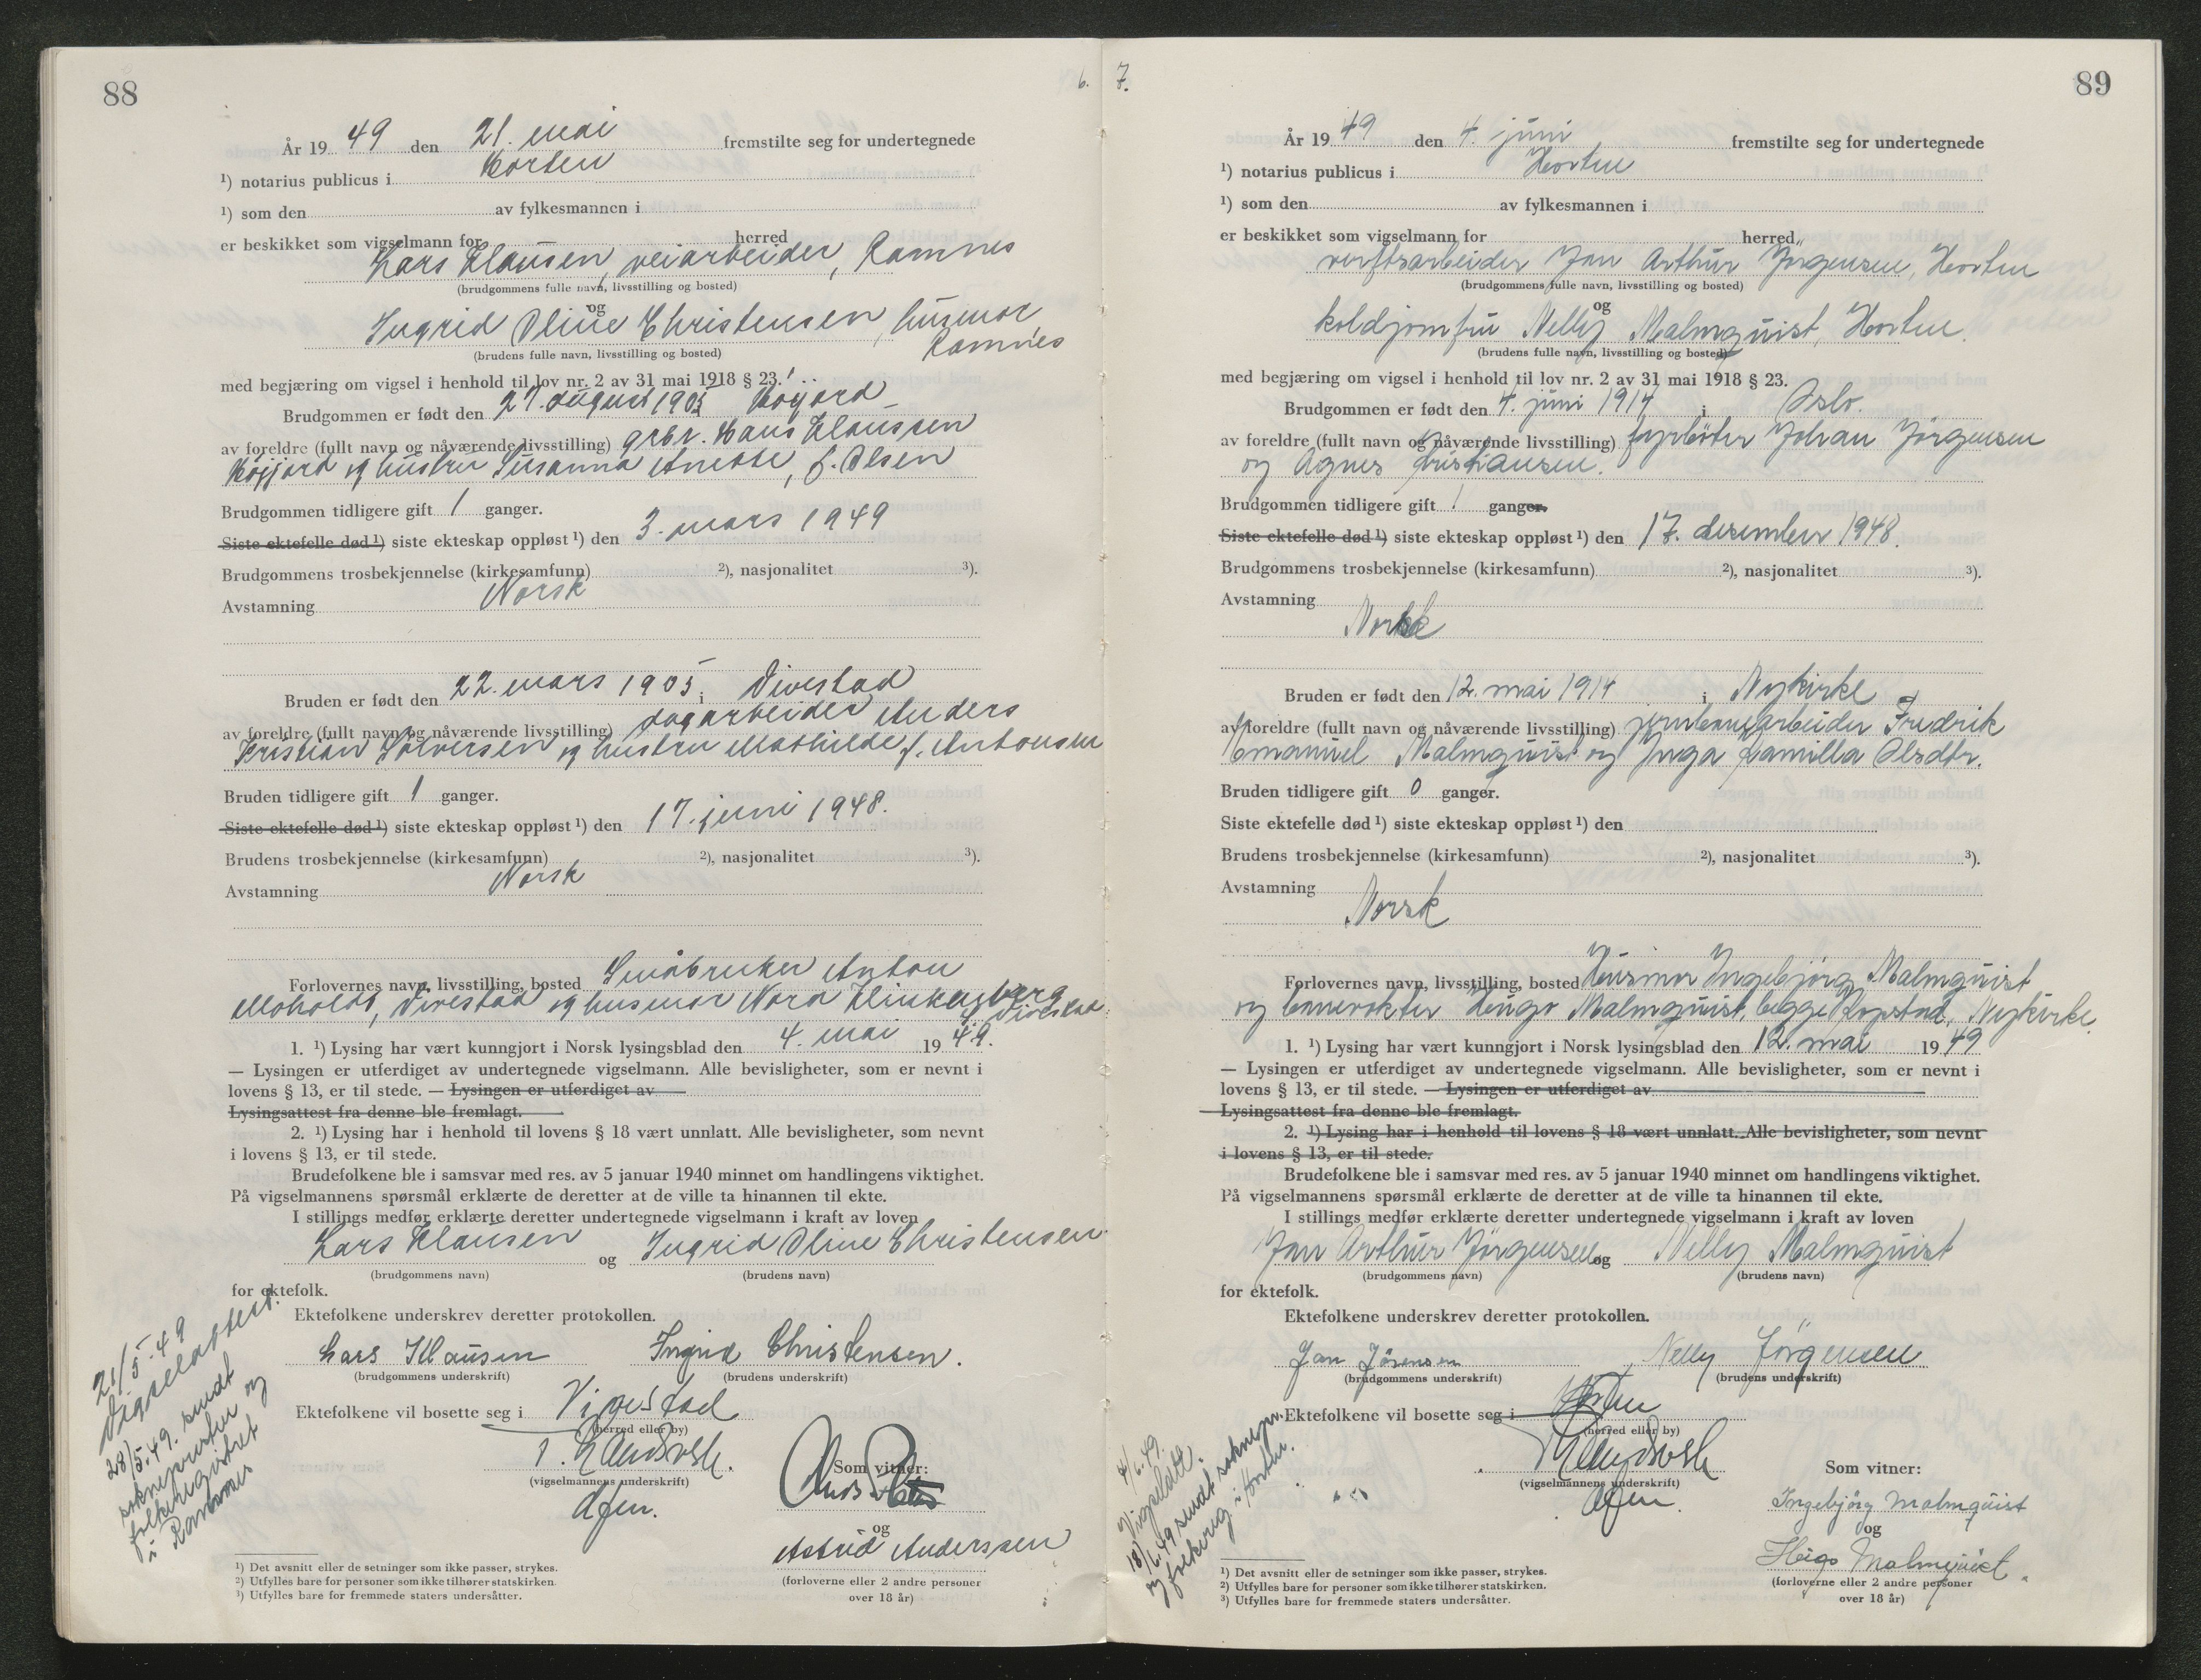 88
6.
År 19 49 den 21. mai fremstilte seg for undertegnede
¹) notarius publicus i Horten
¹) som den av fylkesmannen i
er beskikket som vigselmann for herred
Lars Klausen, veiarbeider, Ramnes
(brudgommens fulle navn, livsstilling og bosted)
og
Ingrid Oline Christensen, husmor
Ramnes
(brudens fulle navn, livsstilling og bosted)
med begjæring om vigsel i henhold til lov nr. 2 av 31 mai 1918 § 23.
Brudgommen er født den 27. august 1905
av foreldre (fullt navn og nåværende livsstilling) grbr. Hans Klaussen
og hustru Susanna Anette, f. Olsen
Brudgommen tidligere gift 1 ganger.
Siste ektefelle død ¹) siste ekteskap oppløst ¹) den 3. mars 1949
Brudgommens trosbekjennelse (kirkesamfunn) ²), nasjonalitet ³).
Avstamning Norsk
Bruden er født den 22. mars 1905 i Vivestad
av foreldre (fullt navn og nåværende livsstilling) dagarbeider Anders
Kristian Halversen og hustru Mathilde f. Antonsen
Bruden tidligere gift 1 ganger.
Siste ektefelle død ¹) siste ekteskap oppløst ¹) den 17. juni 1948.
Brudens trosbekjennelse (kirkesamfunn) ²), nasjonalitet ³).
Avstamning Norsk
Forlovernes navn, livsstilling, bosted Småbruker Anton
Moholdt, Vivestad og husmor Nora Klinkenberg
Vivestad
1. ¹) Lysing har vært kunngjort i Norsk lysingsblad den 4. mai 19 49.
— Lysingen er utferdiget av undertegnede vigselmann. Alle bevisligheter, som er nevnt i
lovens § 13, er til stede. — Lysingen er utferdiget av
Lysingsattest fra denne ble fremlagt.
2. ¹) Lysing har i henhold til lovens § 18 vært unnlatt. Alle bevisligheter, som nevnt
i lovens § 13, er til stede.
Brudefolkene ble i samsvar med res. av 5 januar 1940 minnet om handlingens viktighet.
På vigselmannens spørsmål erklærte de deretter at de ville ta hinannen til ekte.
I stillings medfør erklærte deretter undertegnede vigselmann i kraft av loven
Lars Klausen og Ingrid Oline Christensen
(brudgommens navn) (brudens navn)
for ektefolk.
Ektefolkene underskrev deretter protokollen.
Lars Klausen Ingrid Christensen.
(brudgommens underskrift) (brudens underskrift)
Ektefolkene vil bosette seg i Vivestad
(herred eller by)
(vigselmannens underskrift)
Som vitner:
og
Astrid Anderssen
(forloverne eller 2 andre personer
over 18 år)
21/5.49
Vigselattest.
28/5.49. sendt
sokneprester og
folkeregistret
i Ramnes
¹) Det avsnitt eller de setninger som ikke passer, strykes.
²) Utfylles bare for personer som ikke tilhører statskirken.
³) Utfylles bare for fremmede staters undersåtter.
7.
89
År 19 49 den 4. juni fremstilte seg for undertegnede
¹) notarius publicus i Horten
¹) som den av fylkesmannen i
er beskikket som vigselmann for herred
verftsarbeider Jan Arthur Jørgensen, Horten
(brudgommens fulle navn, livsstilling og bosted)
og
koldjomfru Nelly Malmquist, Horten.
(brudens fulle navn, livsstilling og bosted)
med begjæring om vigsel i henhold til lov nr. 2 av 31 mai 1918 § 23.
Brudgommen er født den 4. juni 1914 i Oslo.
av foreldre (fullt navn og nåværende livsstilling) fyrbøter Johan Jörgensen
og Agnes Kristiansen.
Brudgommen tidligere gift 1 ganger.
Siste ektefelle død ¹) siste ekteskap oppløst ¹) den 17. desember 1948.
Brudgommens trosbekjennelse (kirkesamfunn) ²), nasjonalitet ³).
Avstamning
Norsk
Bruden er født den 12. mai 1914 i Nykirke
av foreldre (fullt navn og nåværende livsstilling) jernbanearbeider Fredrik
Emanuel Malmquist og Inga Kamilla Olsdtr.
Bruden tidligere gift 0 ganger.
Siste ektefelle død ¹) siste ekteskap oppløst ¹) den
Brudens trosbekjennelse (kirkesamfunn) ²), nasjonalitet ³).
Avstamning
Norsk
Forlovernes navn, livsstilling, bosted Husmor Ingebjørg Malmquist
og banevokter Hugo Malmquist, begge Kopstad, Nykirke.
1. ¹) Lysing har vært kunngjort i Norsk lysingsblad den 12. mai 19 49
— Lysingen er utferdiget av undertegnede vigselmann. Alle bevisligheter, som er nevnt i
lovens § 13, er til stede. — Lysingen er utferdiget av
Lysingsattest fra denne ble fremlagt.
2. ¹) Lysing har i henhold til lovens § 18 vært unnlatt. Alle bevisligheter, som nevnt
i lovens § 13, er til stede.
Brudefolkene ble i samsvar med res. av 5 januar 1940 minnet om handlingens viktighet.
På vigselmannens spørsmål erklærte de deretter at de ville ta hinannen til ekte.
I stillings medfør erklærte deretter undertegnede vigselmann i kraft av loven
Jan Arthur Jörgensen og Nelly Malmquist
(brudgommens navn) (brudens navn)
for ektefolk.
Ektefolkene underskrev deretter protokollen.
Jan Jörgensen Nelly Jörgensen
(brudgommens underskrift) (brudens underskrift)
Ektefolkene vil bosette seg i Horten
(herred eller by)
(vigselmannens underskrift)
Som vitner:
Ingebjörg Malmquist
og
Hugo Malmquist.
(forloverne eller 2 andre personer
over 18 år)
4/6.49.
Vigselatt.
18/6.49 sendt soknepr.
og folkereg i Horten.
¹) Det avsnitt eller de setninger som ikke passer, strykes.
²) Utfylles bare for personer som ikke tilhører statskirken.
³) Utfylles bare for fremmede staters undersåtter.